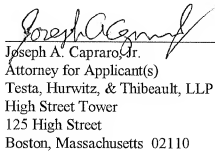 Joseph A. Capraro, Jr.
Attorney for Applicant(s)
Testa, Hurwitz, & Thibeault, LLP
High Street Tower
125 High Street
Boston, Massachusetts  02110